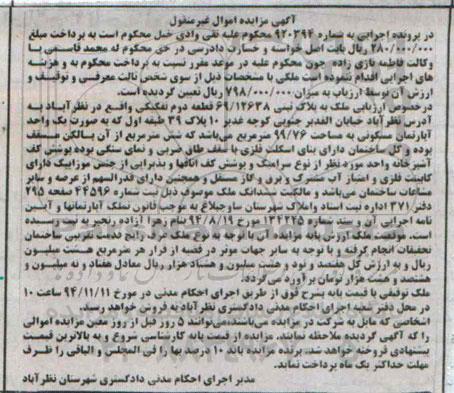 آگهی مزایده اموال غیرمنقول
در پرونده اجرایی به شماره ۹۲۰۳۹۴ محکوم علیه تقی وادی خیل محکوم است به پرداخت مبلغ
۲۸۰/۰۰۰/۰۰۰ ریال بابت اصل خواسته و خسارت دادرسی در حق محکوم له محمد قاسمی با
وکالت فاطمه تازی زاده چون محکوم علیه در موعد مقرر نسبت به پرداخت محکوم به و هزینه
های اجرایی اقدام ننموده است ملکی با مشخصات ذیل از سوی شخص ثالث معرفی و توقیف و
ارزش آن توسط ارزیاب به میزان ۷۹۸/۰۰۰/۰۰۰ ریال تعیین گردیده است.
درخصوص ارزیابی ملک به پلاک ثبتی ۶۹/۱۲۶۳۸ قطعه دوم تفکیکی واقع در نظرآباد به
آدرس نظرآباد خیابان الغدیر جنوبی کوچه غدیر ۱۰ پلاک ۳۹ طبقه اول که به صورت یک واحد
آپارتمان مسکونی به مساحت ۹۹/۷۶ مترمربع می‌باشد که شش مترمربع از آن بالکن مسقف
بوده و کل ساختمان دارای بنای اسکلت فلزی با سقف طاق ضربی و نمای سنگی بوده پوشش کف
آشپزخانه واحد مورد نظر از نوع سرامیک و پوشش کف اتاقها و پذیرایی از جنس موزاییک دارای
کابینت فلزی و امتیاز آب مشترک و برق و گاز مستقل و همچنین دارای قدرالسهم از عرصه و سایر
مشاعات ساختمان می‌باشد و مالکیت ششدانگ ملک موصوف ذیل ثبت شماره ۴۴۵۹۶ صفحه ۲۹۵
دفتر ۳۷۱ اداره ثبت اسناد و املاک شهرستان ساوجبلاغ به موجب قانون تملک آپارتمانها و آیین
نامه اجرایی آن و سند شماره ۱۳۴۲۲۵ مورخ ۹۴/۸/۱۹ بنام زهرا آزاده رنجبر به ثبت رسیده
است. موقعیت ملک ارزش پایه مزایده آن با توجه به نوع ملک نرخ رایج قدمت تقریبی ساختمان
تحقیقات انجام گرفته و با توجه به سایر جهات موثر در قضیه از قرار هر مترمربع هشت میلیون
ریال و به ارزش کل هفتصد و نود و هشت میلیون و هشتاد هزار ریال معادل هفتاد و نه میلیون و
هشتصد و هشت هزار تومان برآورد می‌گردد.
ملک توقیفی با قیمت پایه بشرح فوق از طریق اجرای احکام مدنی در مورخ ۹۴/۱۱/۱۱ ساعت ۱۰
در محل دفتر شعبه اجرای احکام مدنی دادگستری نظرآباد به فروش خواهد رسید.
اشخاصی که مایل به شرکت در مزایده می‌باشند، می‌توانند ۵ روز قبل از روز معین مزایده اموالی
را که آگهی گردیده ملاحظه نمایند. مزایده از قیمت پایه کارشناسی شروع و به بالاترین قیمت
پیشنهادی فروخته خواهد شد. برنده مزایده باید ۱۰ درصد بها را فی المجلس و الباقی را ظرف
مهلت حداکثر یک ماه پرداخت نماید.
مدیر اجرای احکام مدنی دادگستری شهرستان نظرآباد